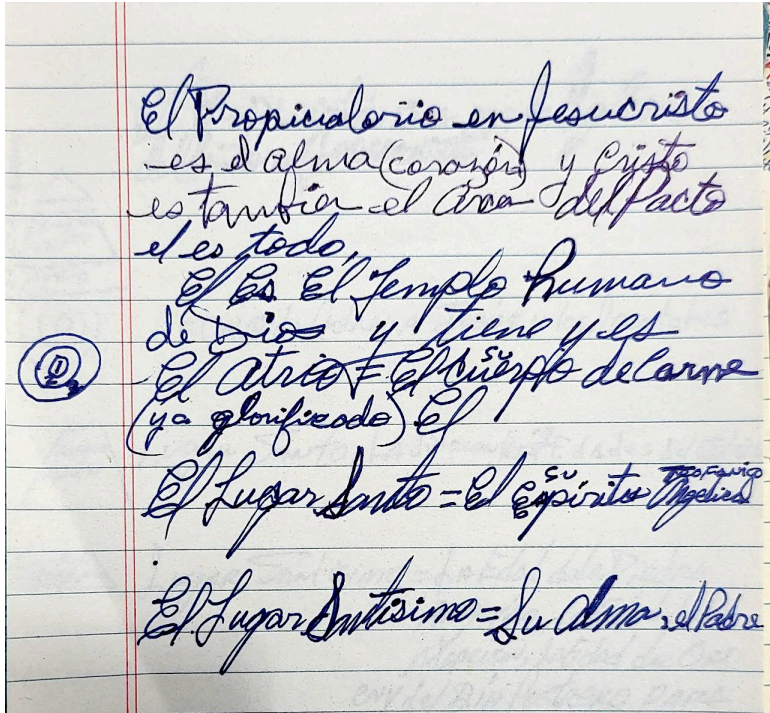 El Propicialorio en Jesucristo
es el alma (corazón) y Cristo
es tanbien el Arca del Pacto
el es todo.
El Es El Templo humano
de Dios y tiene y es
El Atrio = El su cuerpo de Carne
(ya glorificado) El
El Lugar Santo = El su Espíritu Teofanico Angelical
El Lugar Santisimo = Su Alma, el Padre